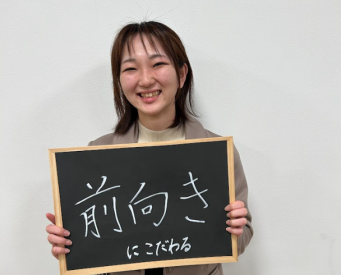 前向き
にこだわる